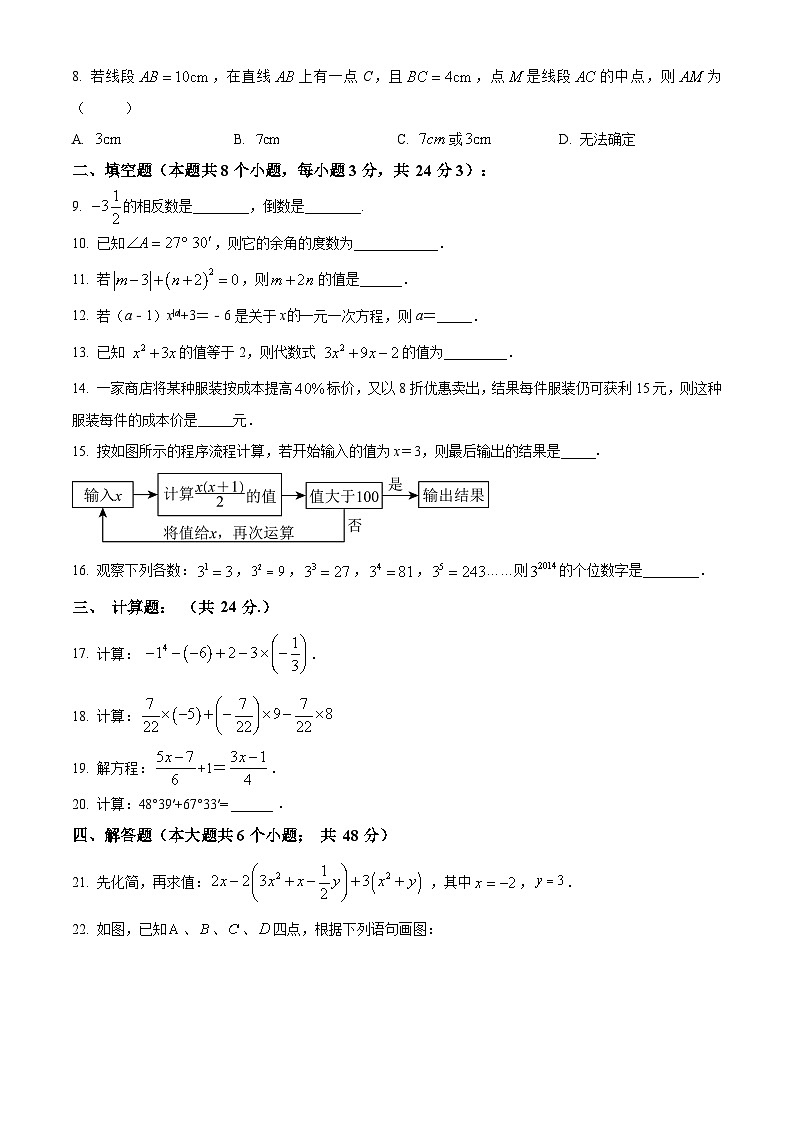 8. 若线段 AB = 10cm ，在直线 AB 上有一点 C，且 BC = 4cm ，点 M 是线段 AC 的中点，则 AM 为
（ ）
A. 3cm B. 7cm C. 7cm 或 3cm D. 无法确定
二、填空题（本题共 8 个小题，每小题 3 分，共 24 分 3）：
9. −3 1/2 的相反数是________，倒数是________.
10. 已知∠A = 27° 30′，则它的余角的度数为____________．
11. 若 |m−3|+(n+2)² = 0，则 m+2n 的值是______．
12. 若（a﹣1）x|a|+3＝﹣6 是关于 x 的一元一次方程，则 a＝_____．
13. 已知 x²+3x 的值等于 2，则代数式 3x²+9x−2 的值为_________．
14. 一家商店将某种服装按成本提高 40% 标价，又以 8 折优惠卖出，结果每件服装仍可获利 15 元，则这种
服装每件的成本价是_____元．
15. 按如图所示的程序流程计算，若开始输入的值为 x＝3，则最后输出的结果是_____．
输入x 计算 x(x＋1)/2 的值 值大于100 是 输出结果
将值给x，再次运算 否
16. 观察下列各数：3¹ = 3，3² = 9，3³ = 27，3⁴ = 81，3⁵ = 243……则 3²⁰¹⁴ 的个位数字是________．
三、 计算题： （共 24 分.）
17. 计算： −1⁴−(−6)+2−3×(−1/3)．
18. 计算：7/22×(−5)+(−7/22)×9−7/22×8
19. 解方程：(5x−7)/6+1＝(3x−1)/4．
20. 计算：48°39′+67°33′=______．
四、解答题（本大题共 6 个小题； 共 48 分）
21. 先化简，再求值：2x−2(3x²+x−1/2y)+3(x²+y) ，其中 x = −2，y = 3．
22. 如图，已知 A 、B 、C 、D 四点，根据下列语句画图：